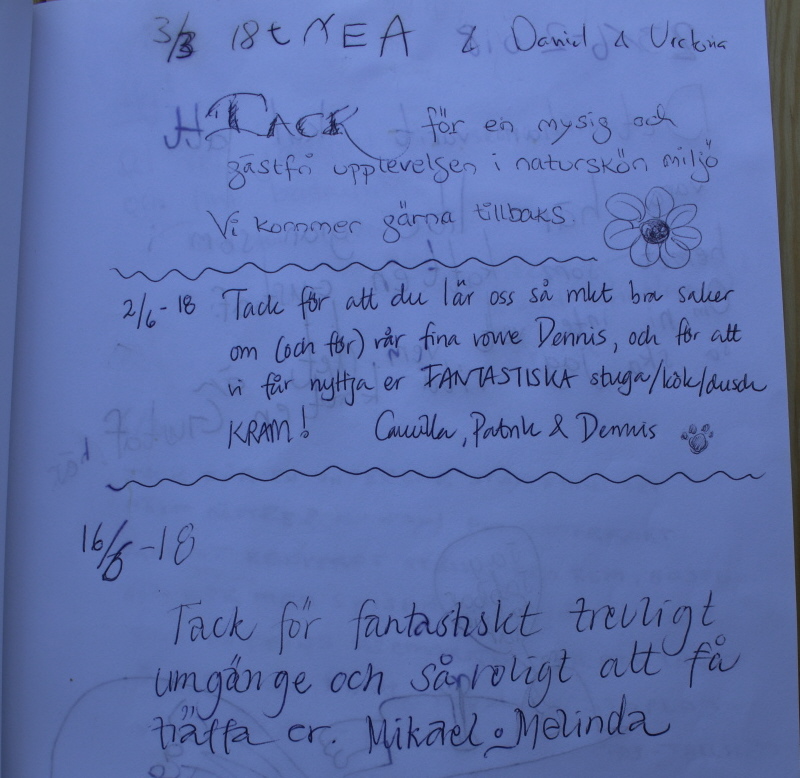 3/3 18 t NEA & Daniel &
TACK för en mysig och
gästfri upplevelsen i naturskön miljö
Vi kommer gärna tillbaks
2/6-18 Tack för att du lär oss så mkt bra saker
om (och för) vår fina vovve Dennis, och för att
vi får nyttja er FANTASTISKA stuga/kök/dusch
KRAM! Camilla, Patrik & Dennis
16/6-18
Tack för fantastiskt trevligt
umgänge och så roligt att få
träffa er. Mikael o Melinda